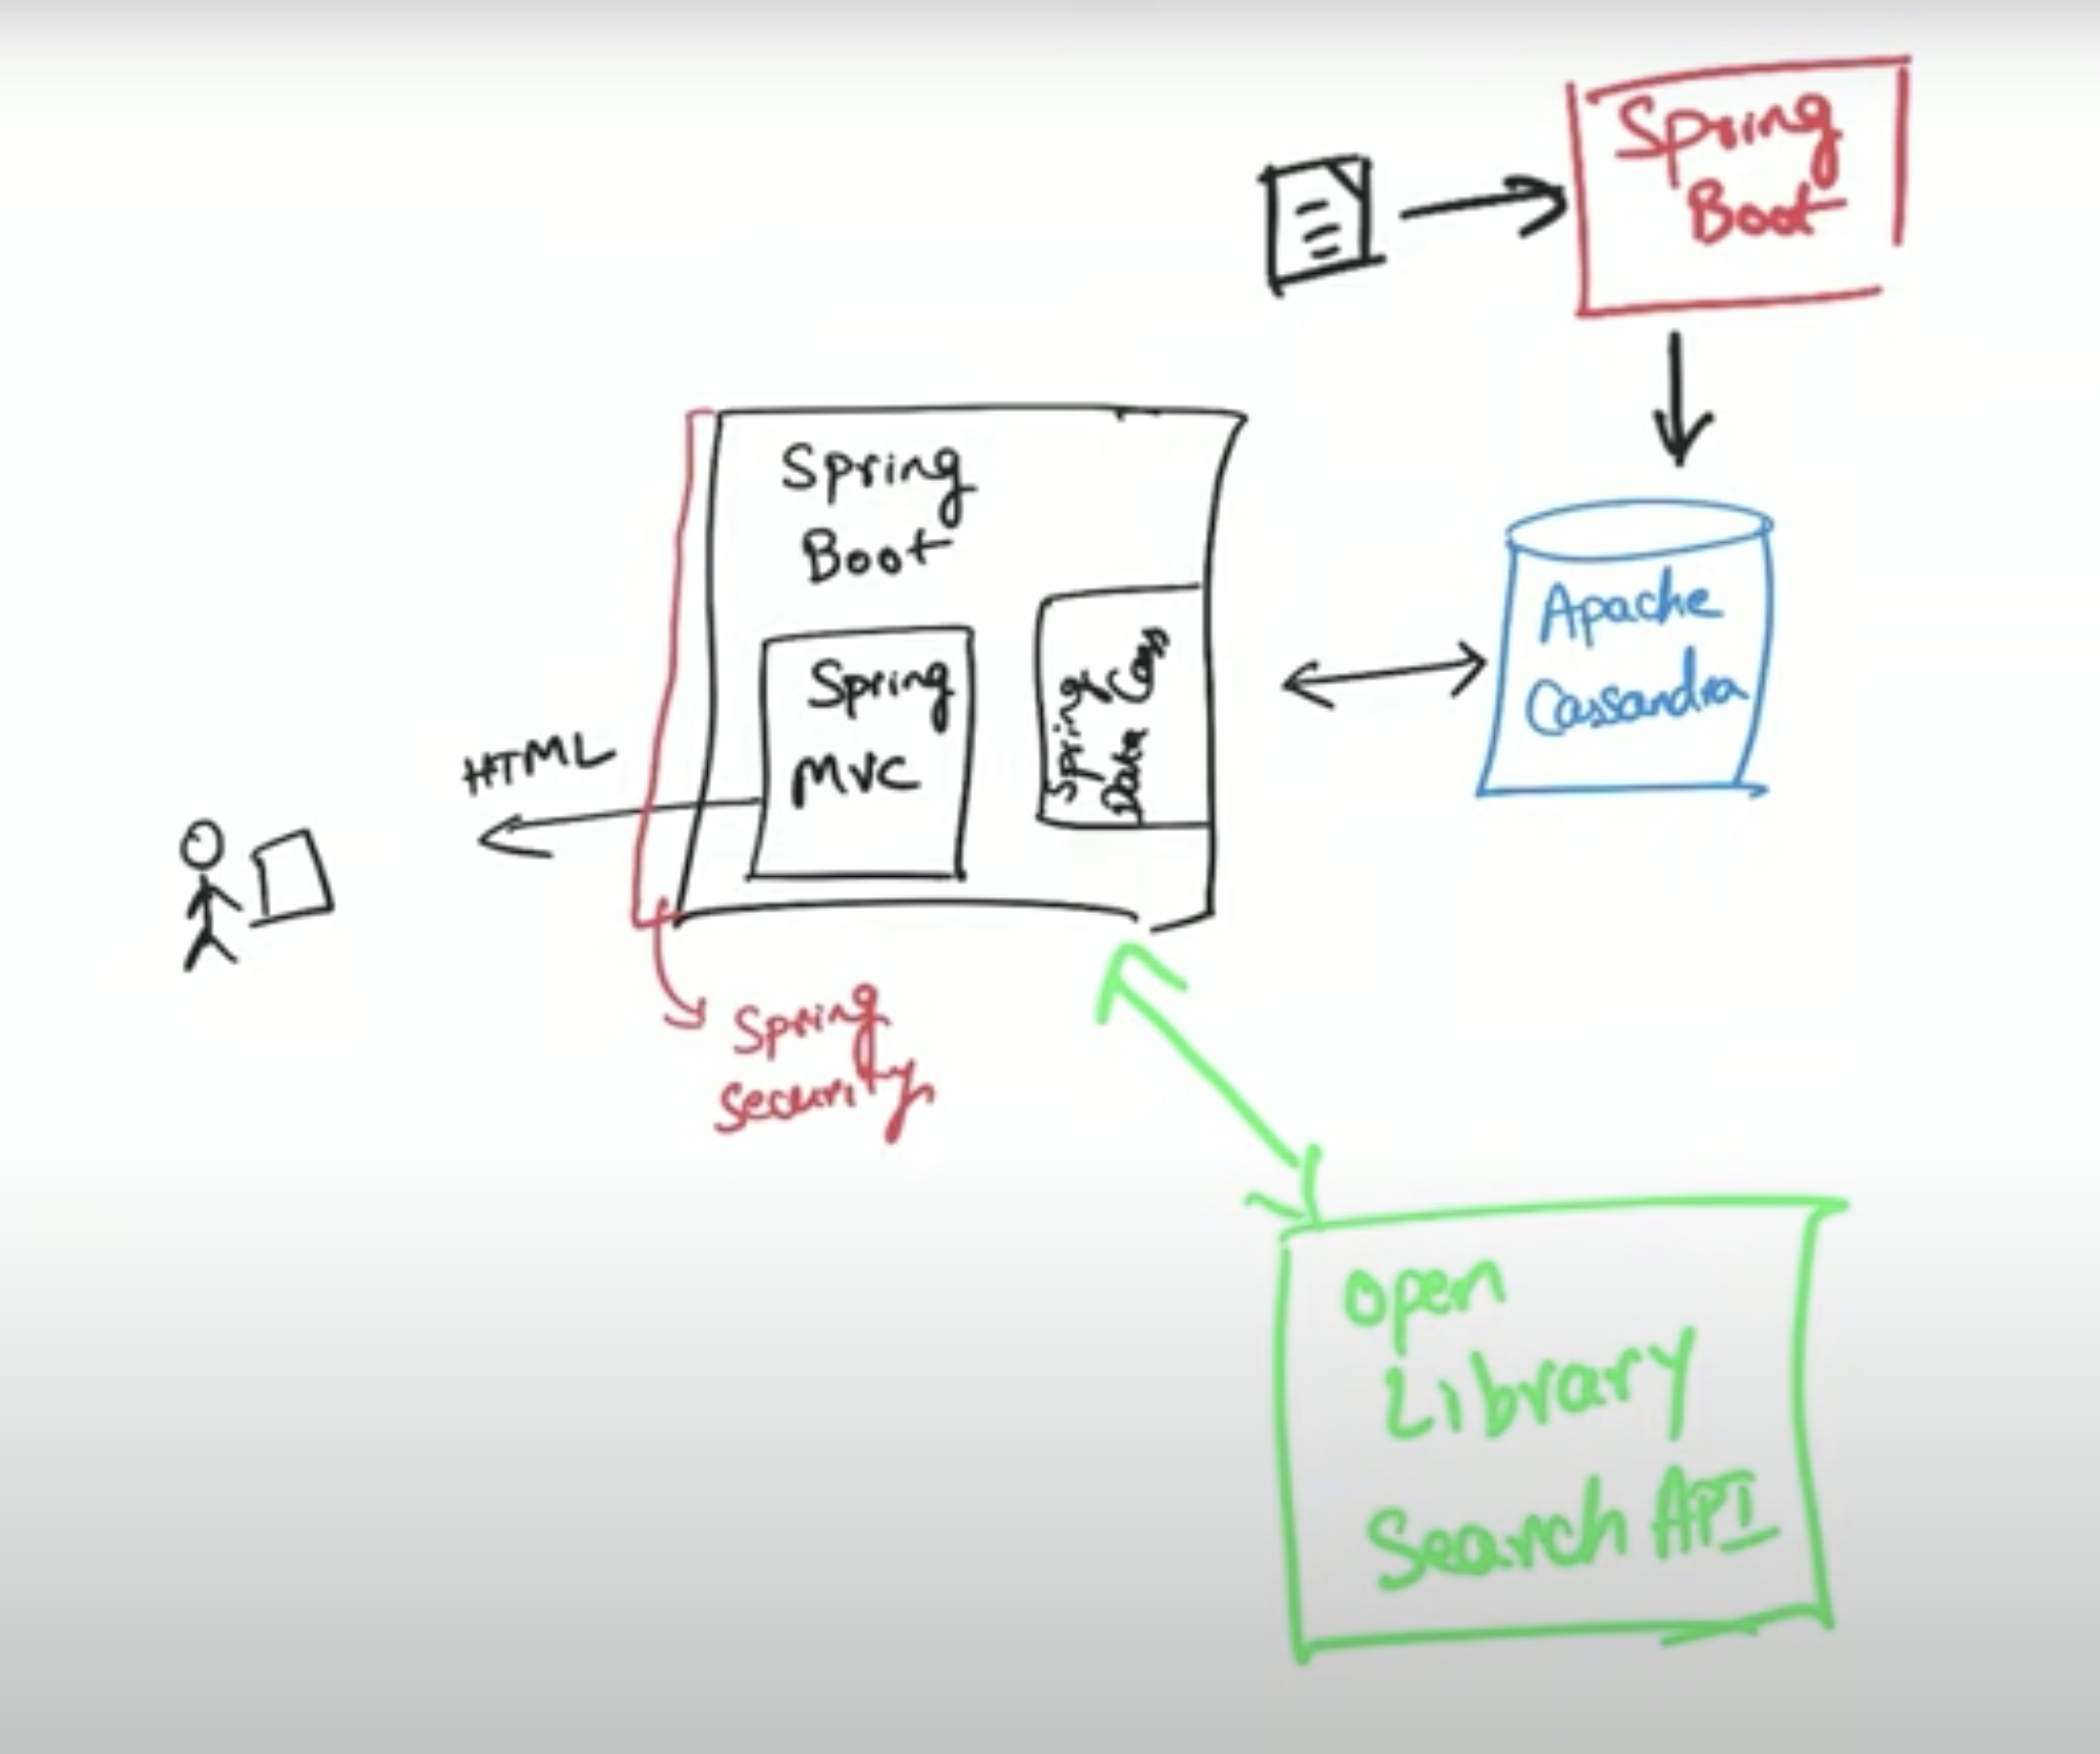 Spring
Boot
Spring
Boot
Spring
MVC
Spring
Data Cass
Apache
Cassandra
HTML
Spring
Security
Open
Library
Search API